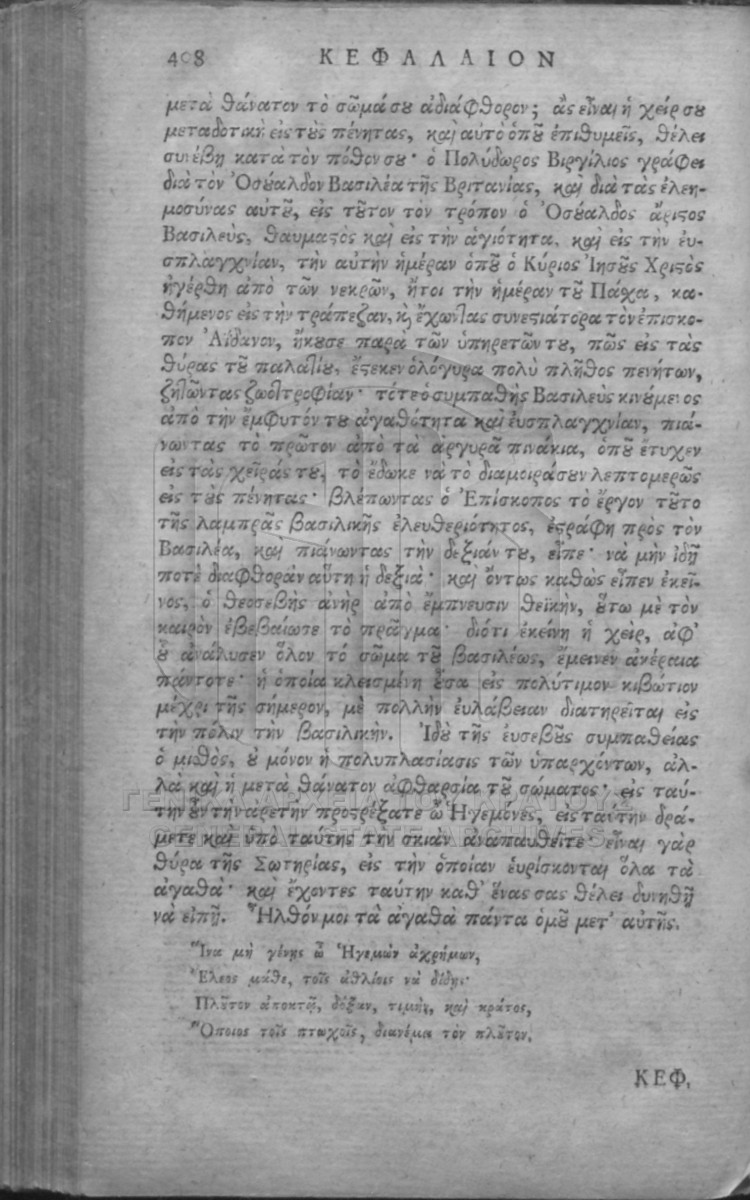 408 ΚΕΦΑΛΑΙΟΝ
μετὰ θάνατον τὸ σῶμά σου ἀδιάφθορον; ἂς εἶναι ἡ χείρ σου
μεταδοτικὴ εἰς τοὺς πένητας, καὶ αὐτὸ ὁποῦ ἐπιθυμεῖς, θέλει
συνέβῃ κατὰ τὸν πόθον σου· ὁ Πολύδωρος Βιργίλιος γράφει
διὰ τὸν Ὀσουάλδον Βασιλέα τῆς Βριτανίας, καὶ διὰ τὰς ἐλεη-
μοσύνας αὐτοῦ, εἰς τοῦτον τὸν τρόπον ὁ Ὀσουάλδος ἄριστος
Βασιλεὺς, θαυμαστὸς καὶ εἰς τὴν ἁγιότητα, καὶ εἰς τὴν εὐ-
σπλαγχνίαν, τὴν αὐτὴν ἡμέραν ὁποῦ ὁ Κύριος Ἰησοῦς Χριστὸς
ἠγέρθη ἀπὸ τῶν νεκρῶν, ἤτοι τὴν ἡμέραν τοῦ Πάσχα, κα-
θήμενος εἰς τὴν τράπεζαν, κὶ ἔχωντας συνεστιάτορα τὸν ἐπίσκο-
πον Ἀίδανον, ἤκουσε παρὰ τῶν ὑπηρετῶν του, πῶς εἰς τὰς
θύρας τοῦ παλατίου, ἔστεκεν ὁλόγυρα πολὺ πλῆθος πενήτων,
ζητῶντας ζωοτροφίαν· τότε ὁ συμπαθὴς Βασιλεὺς κινούμενος
ἀπὸ τὴν ἔμφυτόν του ἀγαθότητα καὶ εὐσπλαγχνίαν, πιά-
νωντας τὸ πρῶτον ἀπὸ τὰ ἀργυρᾶ πινάκια, ὁποῦ ἔτυχεν
εἰς τὰς χεῖράς του, τὸ ἔδωκε νὰ τὸ διαμοιράσουν λεπτομερῶς
εἰς τοὺς πένητας· βλέπωντας ὁ Ἐπίσκοπος τὸ ἔργον τοῦτο
τῆς λαμπρᾶς βασιλικῆς ἐλευθεριότητος, ἐστράφη πρὸς τὸν
Βασιλέα, καὶ πιάνωντας τὴν δεξιάν του, εἶπε· νὰ μὴν ἰδῇ
ποτὲ διαφθορὰν αὕτη ἡ δεξιὰ· καὶ ὄντως καθὼς εἶπεν ἐκεῖ-
νος, ὁ θεοσεβὴς ἀνὴρ ἀπὸ ἔμπνευσιν θεϊκὴν, οὕτω μὲ τὸν
καιρὸν ἐβεβαίωσε τὸ πρᾶγμα· διότι ἐκείνη ἡ χεὶρ, ἀφ'
οὗ ἀνάλυσεν ὅλον τό σῶμα τοῦ βασιλέως, ἔμεινεν ἀκέραια
πάντοτε· ἡ ὁποία κλεισμένη οὖσα εἰς πολύτιμον κιβώτιον
μέχρι τῆς σήμερον, μὲ πολλὴν εὐλάβειαν διατηρεῖται εἰς
τὴν πόλιν τὴν βασιλικὴν. Ἰδοὺ τῆς εὐσεβοῦς συμπαθείας
ὁ μιθὸς, οὐ μόνον ἡ πολυπλασίασις τῶν ὑπαρχόντων, ἀλ-
λὰ καὶ ἡ μετὰ θάνατον ἀφθαρσία τοῦ σώματος· εἰς ταύ-
την οὖν τὴν ἀρετὴν προστρέξατε ὦ Ἡγεμόνες, εἰς ταύτην δρά-
μετε καὶ ὑπὸ ταύτης τὴν σκιὰν ἀναπαυθεῖτε· εἶναι γὰρ
θύρα τῆς Σωτηρίας, εἰς τὴν ὁποίαν εὑρίσκονται ὅλα τὰ
ἀγαθὰ· καὶ ἔχοντες ταύτην καθ' ἕνας σας θέλει δυνηθῇ
νὰ εἰπῇ. Ἦλθόν μοι τὰ ἀγαθὰ πάντα ὁμοῦ μετ' αὐτῆς.
Ἵνα μὴ γένῃς ὦ Ἡγεμὼν ἀχρήμων,
Ἔλεος μάθε, τοῖς ἀθλίοις νὰ δίδῃς·
Πλοῦτον ἀποκτᾷ, δόξαν, τιμὴν, καὶ κράτος,
Ὅποιος τοῖς πτωχοῖς, διανέμει τὸν πλοῦτον.
ΚΕΦ.
ΓΕΝΙΚΑ ΑΡΧΕΙΑ ΤΟΥ ΚΡΑΤΟΥΣ
GENERAL STATE ARCHIVES